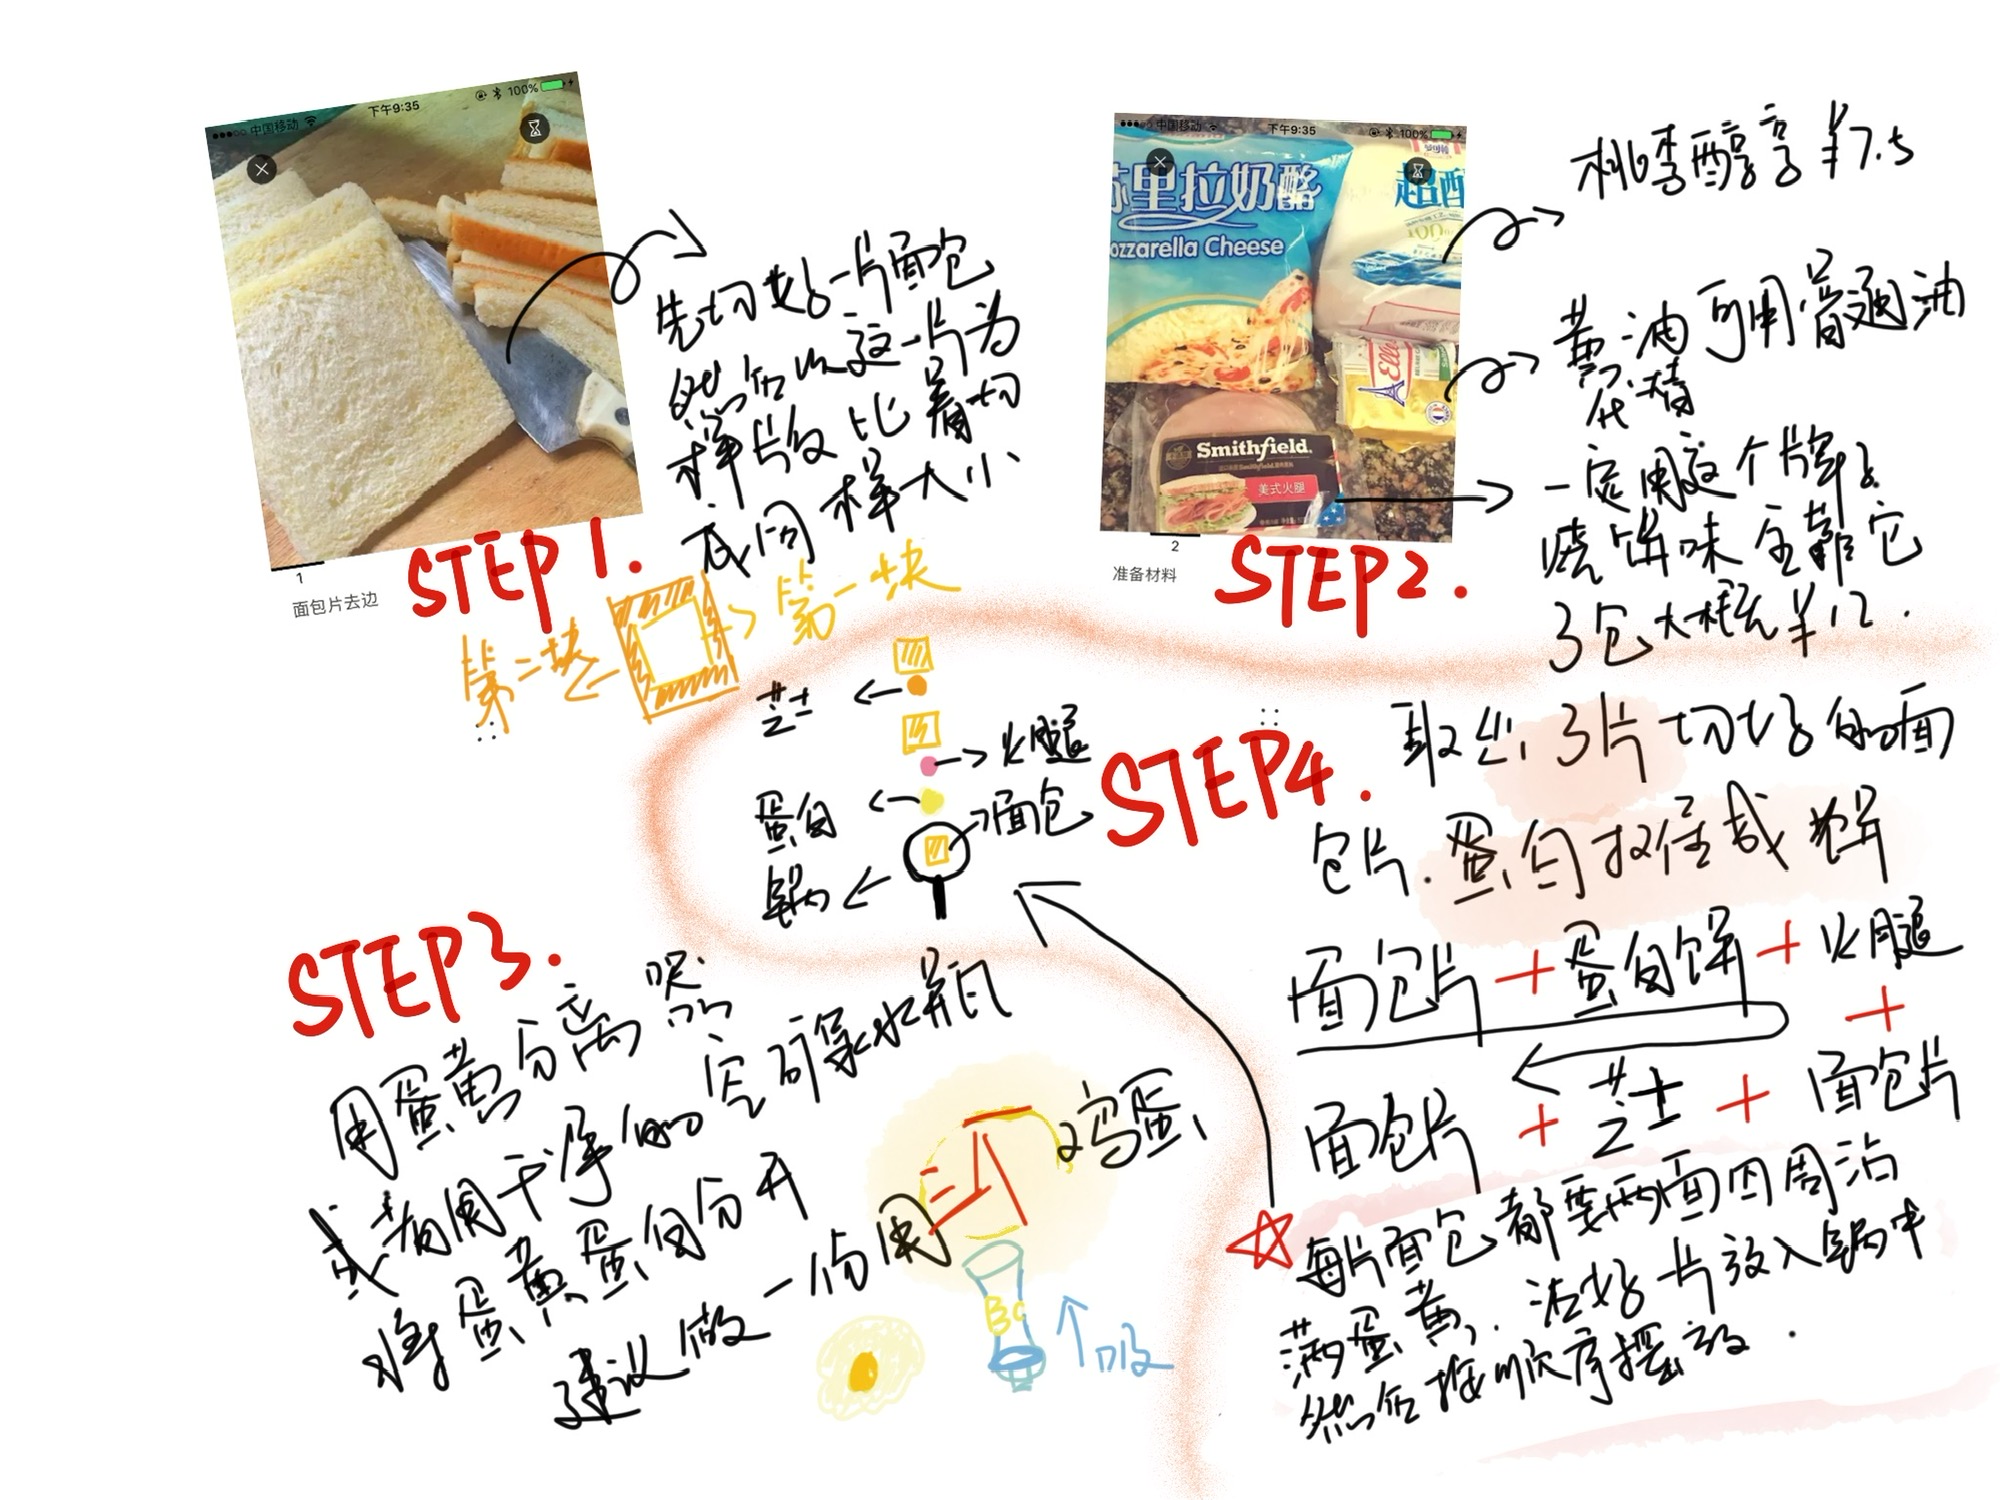 中国移动
下午9:35
100%
1
面包片去边
STEP 1.
先切好一片面包
然后以这一片为
样片放比着切
成同样大小
第一块
第二块
中国移动
下午9:35
100%
里拉奶酪
ozzarella Cheese
超
100%
Elle
Smithfield
美式火腿
2
准备材料
STEP2.
桃李醇享 ¥7.5
黄油可用普通油
代替
一定用这个牌子
味主靠它
3包大概¥12.
芝士
火腿
蛋白
面包
锅
STEP3.
用蛋黄分离器
或者用干净的空矿泉水瓶
将蛋黄蛋白分开
建议做一份用
2鸡蛋
吸
STEP4.
取出3片切好的面
包片.蛋白
面包片+蛋白饼+火腿
+
面包片+芝士+面包片
每片面包都要两面四周沾
满蛋黄.沾好一片放入锅中
然后按顺序摆放.